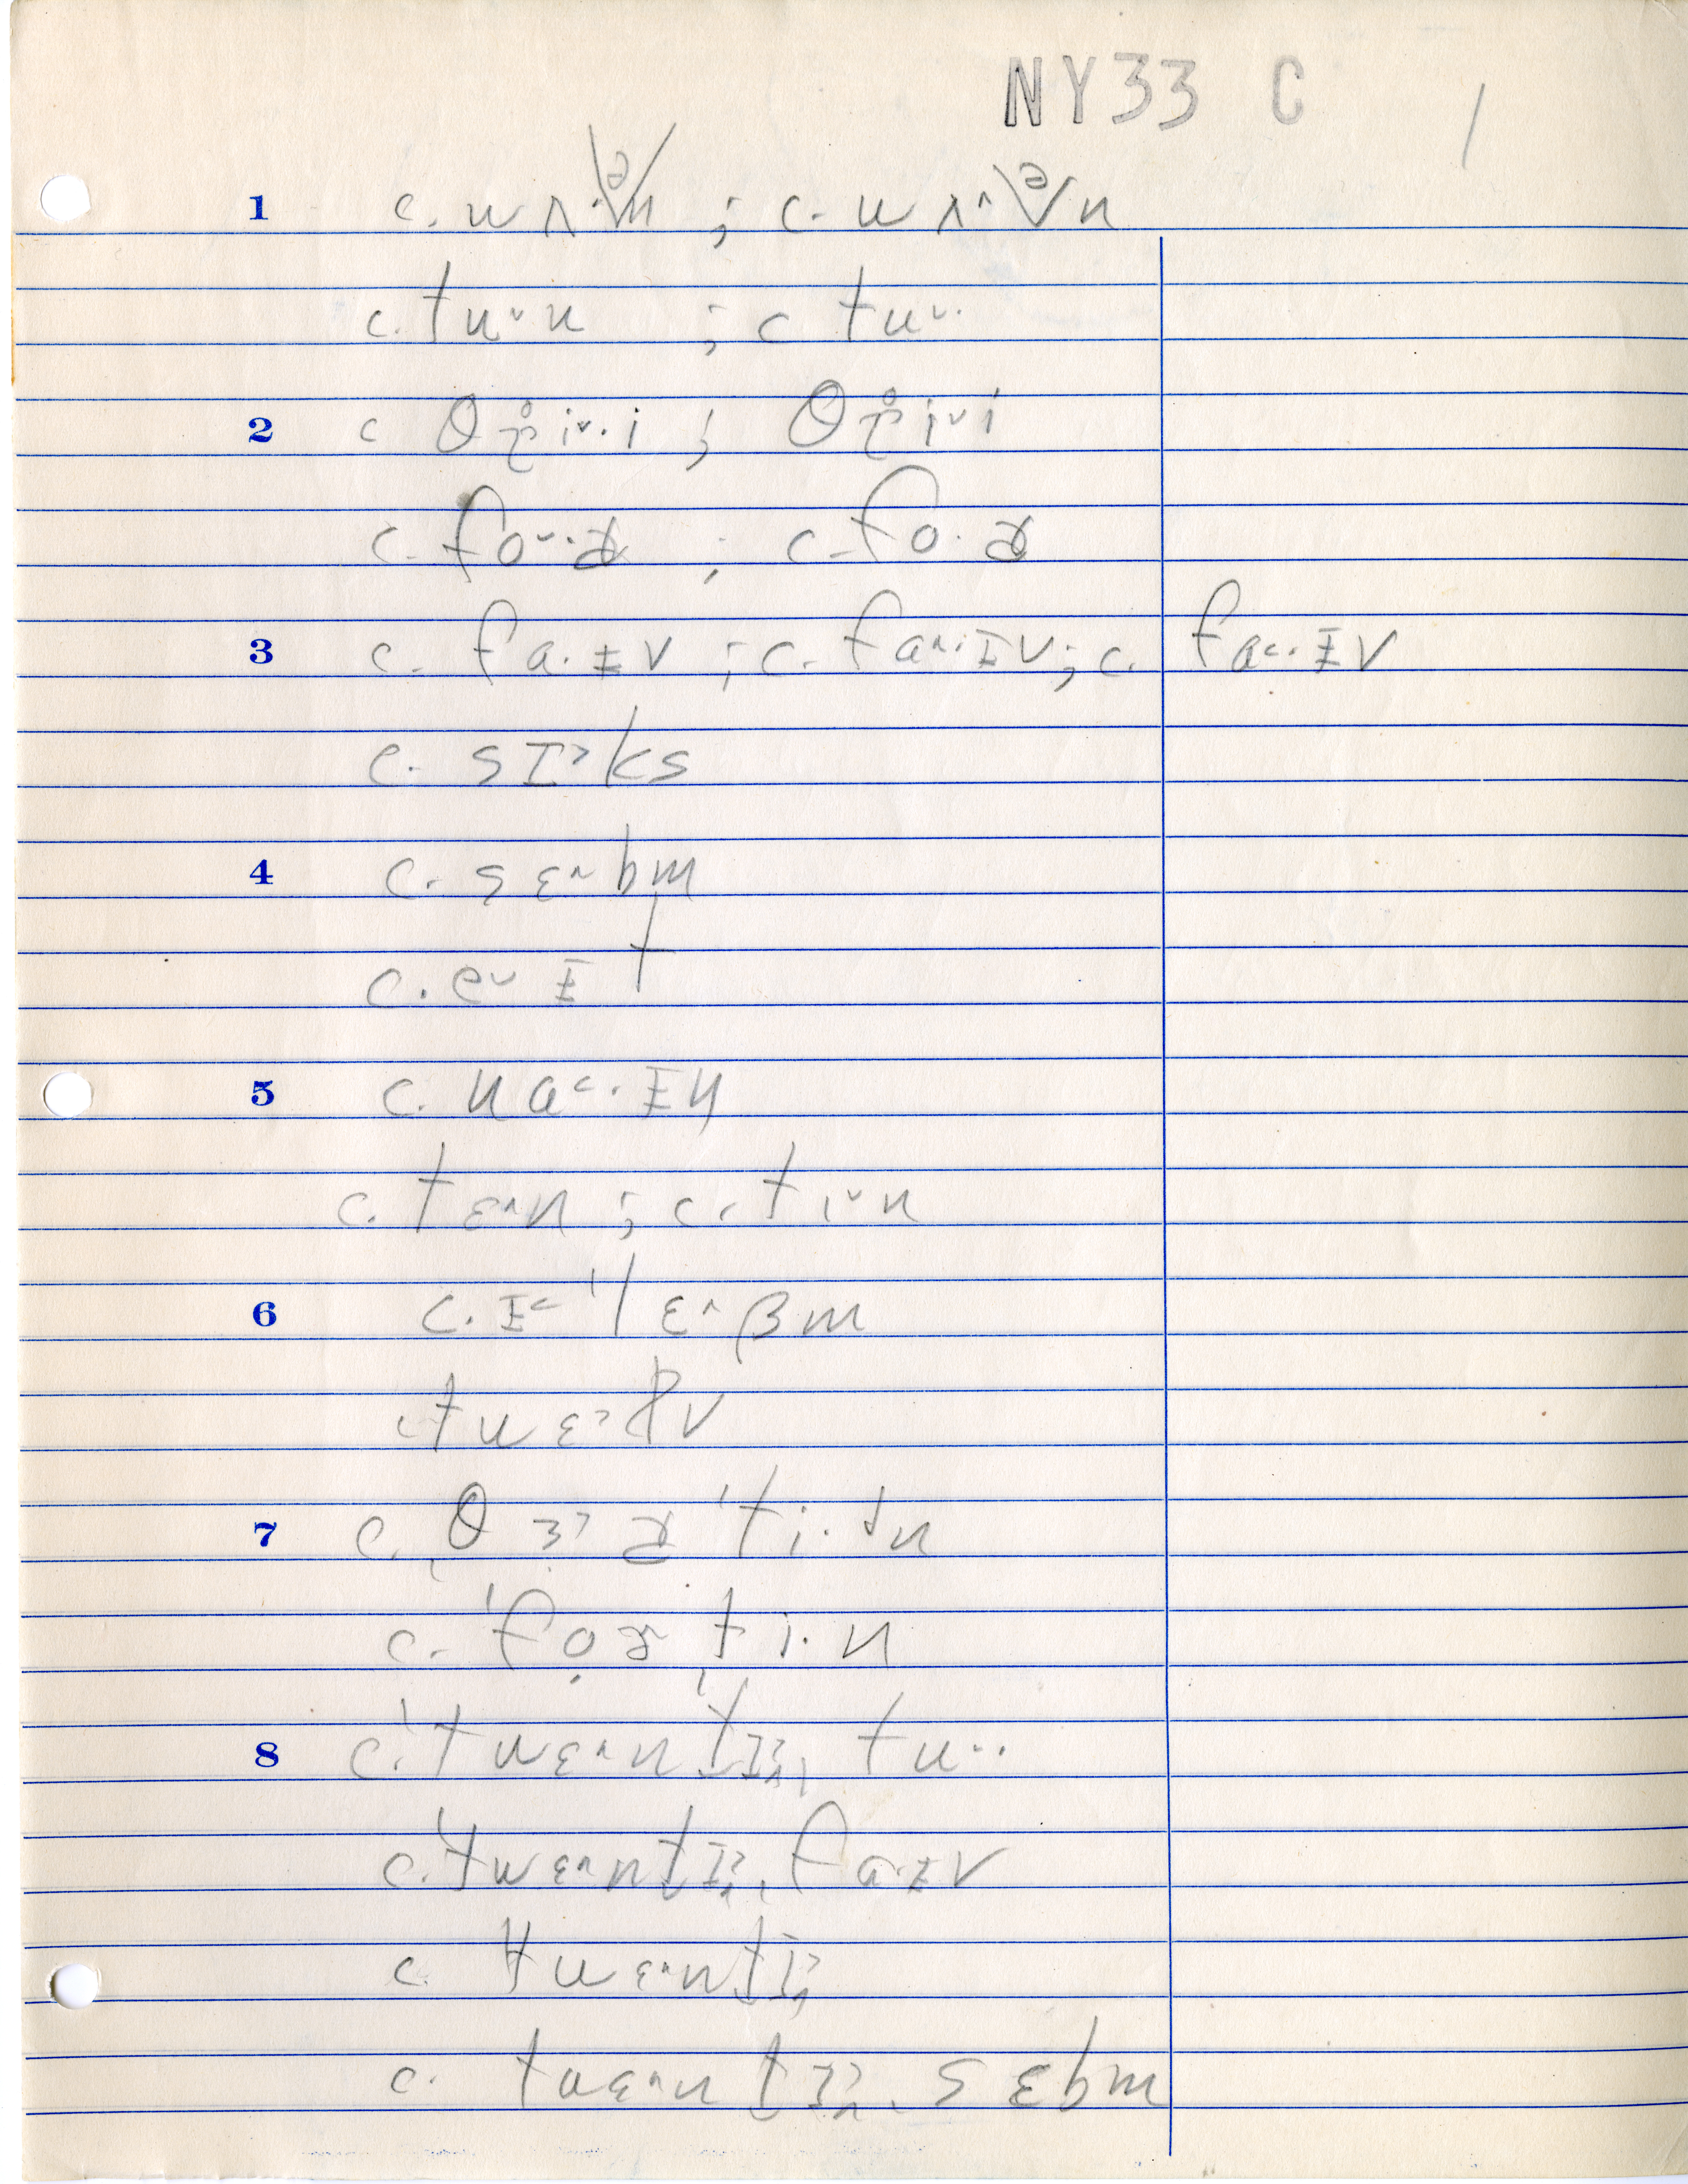 NY33 C 1
1 c. wʌ·ə̌n ; c. wʌ˄ə̌n
c. tu˅u ; c tu˅·
2 c θɽ̥i˅·i ; θɽ̥i˅i
c. fo˅·ɚ ; c. fo·ɚ
3 c. fa·ɪv ; c. fa˄·ɪv ; c. fa˂·ɪv
c. sɪ˃ks
4 c. sɛ˄bm
c. e˅ɪt
5 c. na˂·ɪn
c. tɛ˄n ; c. ti˅n
6 c. ɪ˂ˈlɛ˄βm
c. twɛ˃lv
7 c. θɜ˃ɚˈti·dn
c. ˈfoɚti·n
8 c. ˈtwɛ˄nˈtɪ, tu˅·
c. ˈtwɛ˄ntɪ, fa·ɪv
c. twɛ˄ntɪ
c. twɛ˄ntɪ, sɛbm